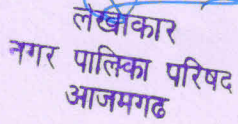 लेखाकार
नगर पालिका परिषद
आजमगढ